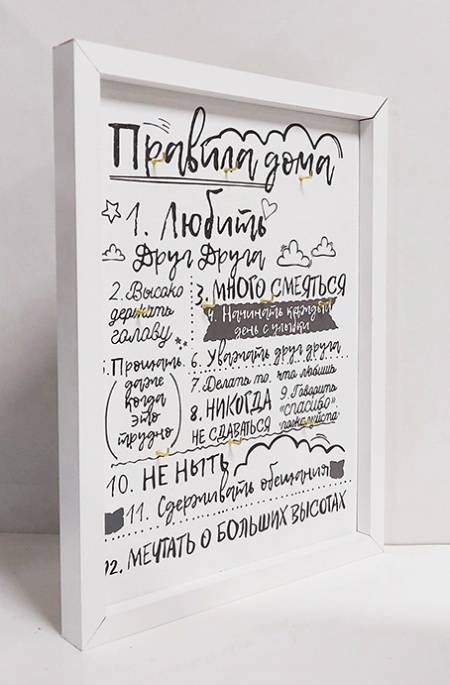 Правила дома
1. Любить
Друг Друга
2. Высоко
держать
голову
3. МНОГО СМЕЯТЬСЯ
4. Начинать каждый
день с улыбки
5. Прощать
даже
когда
это
трудно
6. Уважать друг друга
7. Делать то, что любишь
8. НИКОГДА
НЕ СДАВАТЬСЯ
9. Говорить
"спасибо",
пожалуйста
10. НЕ НЫТЬ
11. Сдерживать обещания
12. МЕЧТАТЬ О БОЛЬШИХ ВЫСОТАХ